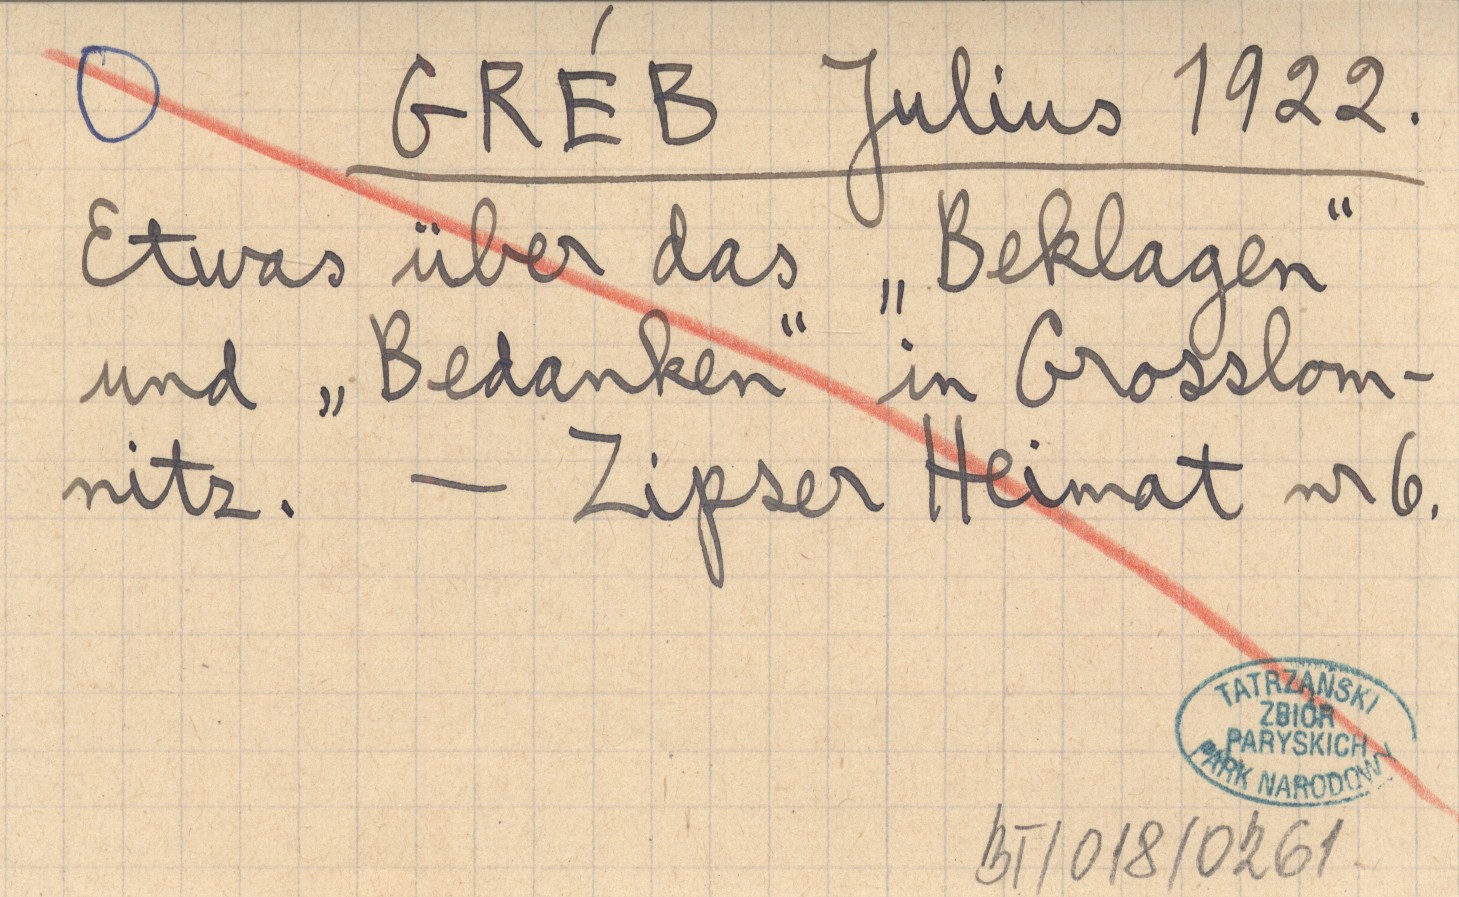 GRÉB Julius 1922.
Etwas über das „Beklagen“
und „Bedanken“ in Grosslom-
nitz. — Zipser Heimat nr 6.
TATRZAŃSKI
ZBIÓR
PARYSKICH
PARK NARODOWY
BT/018/0261